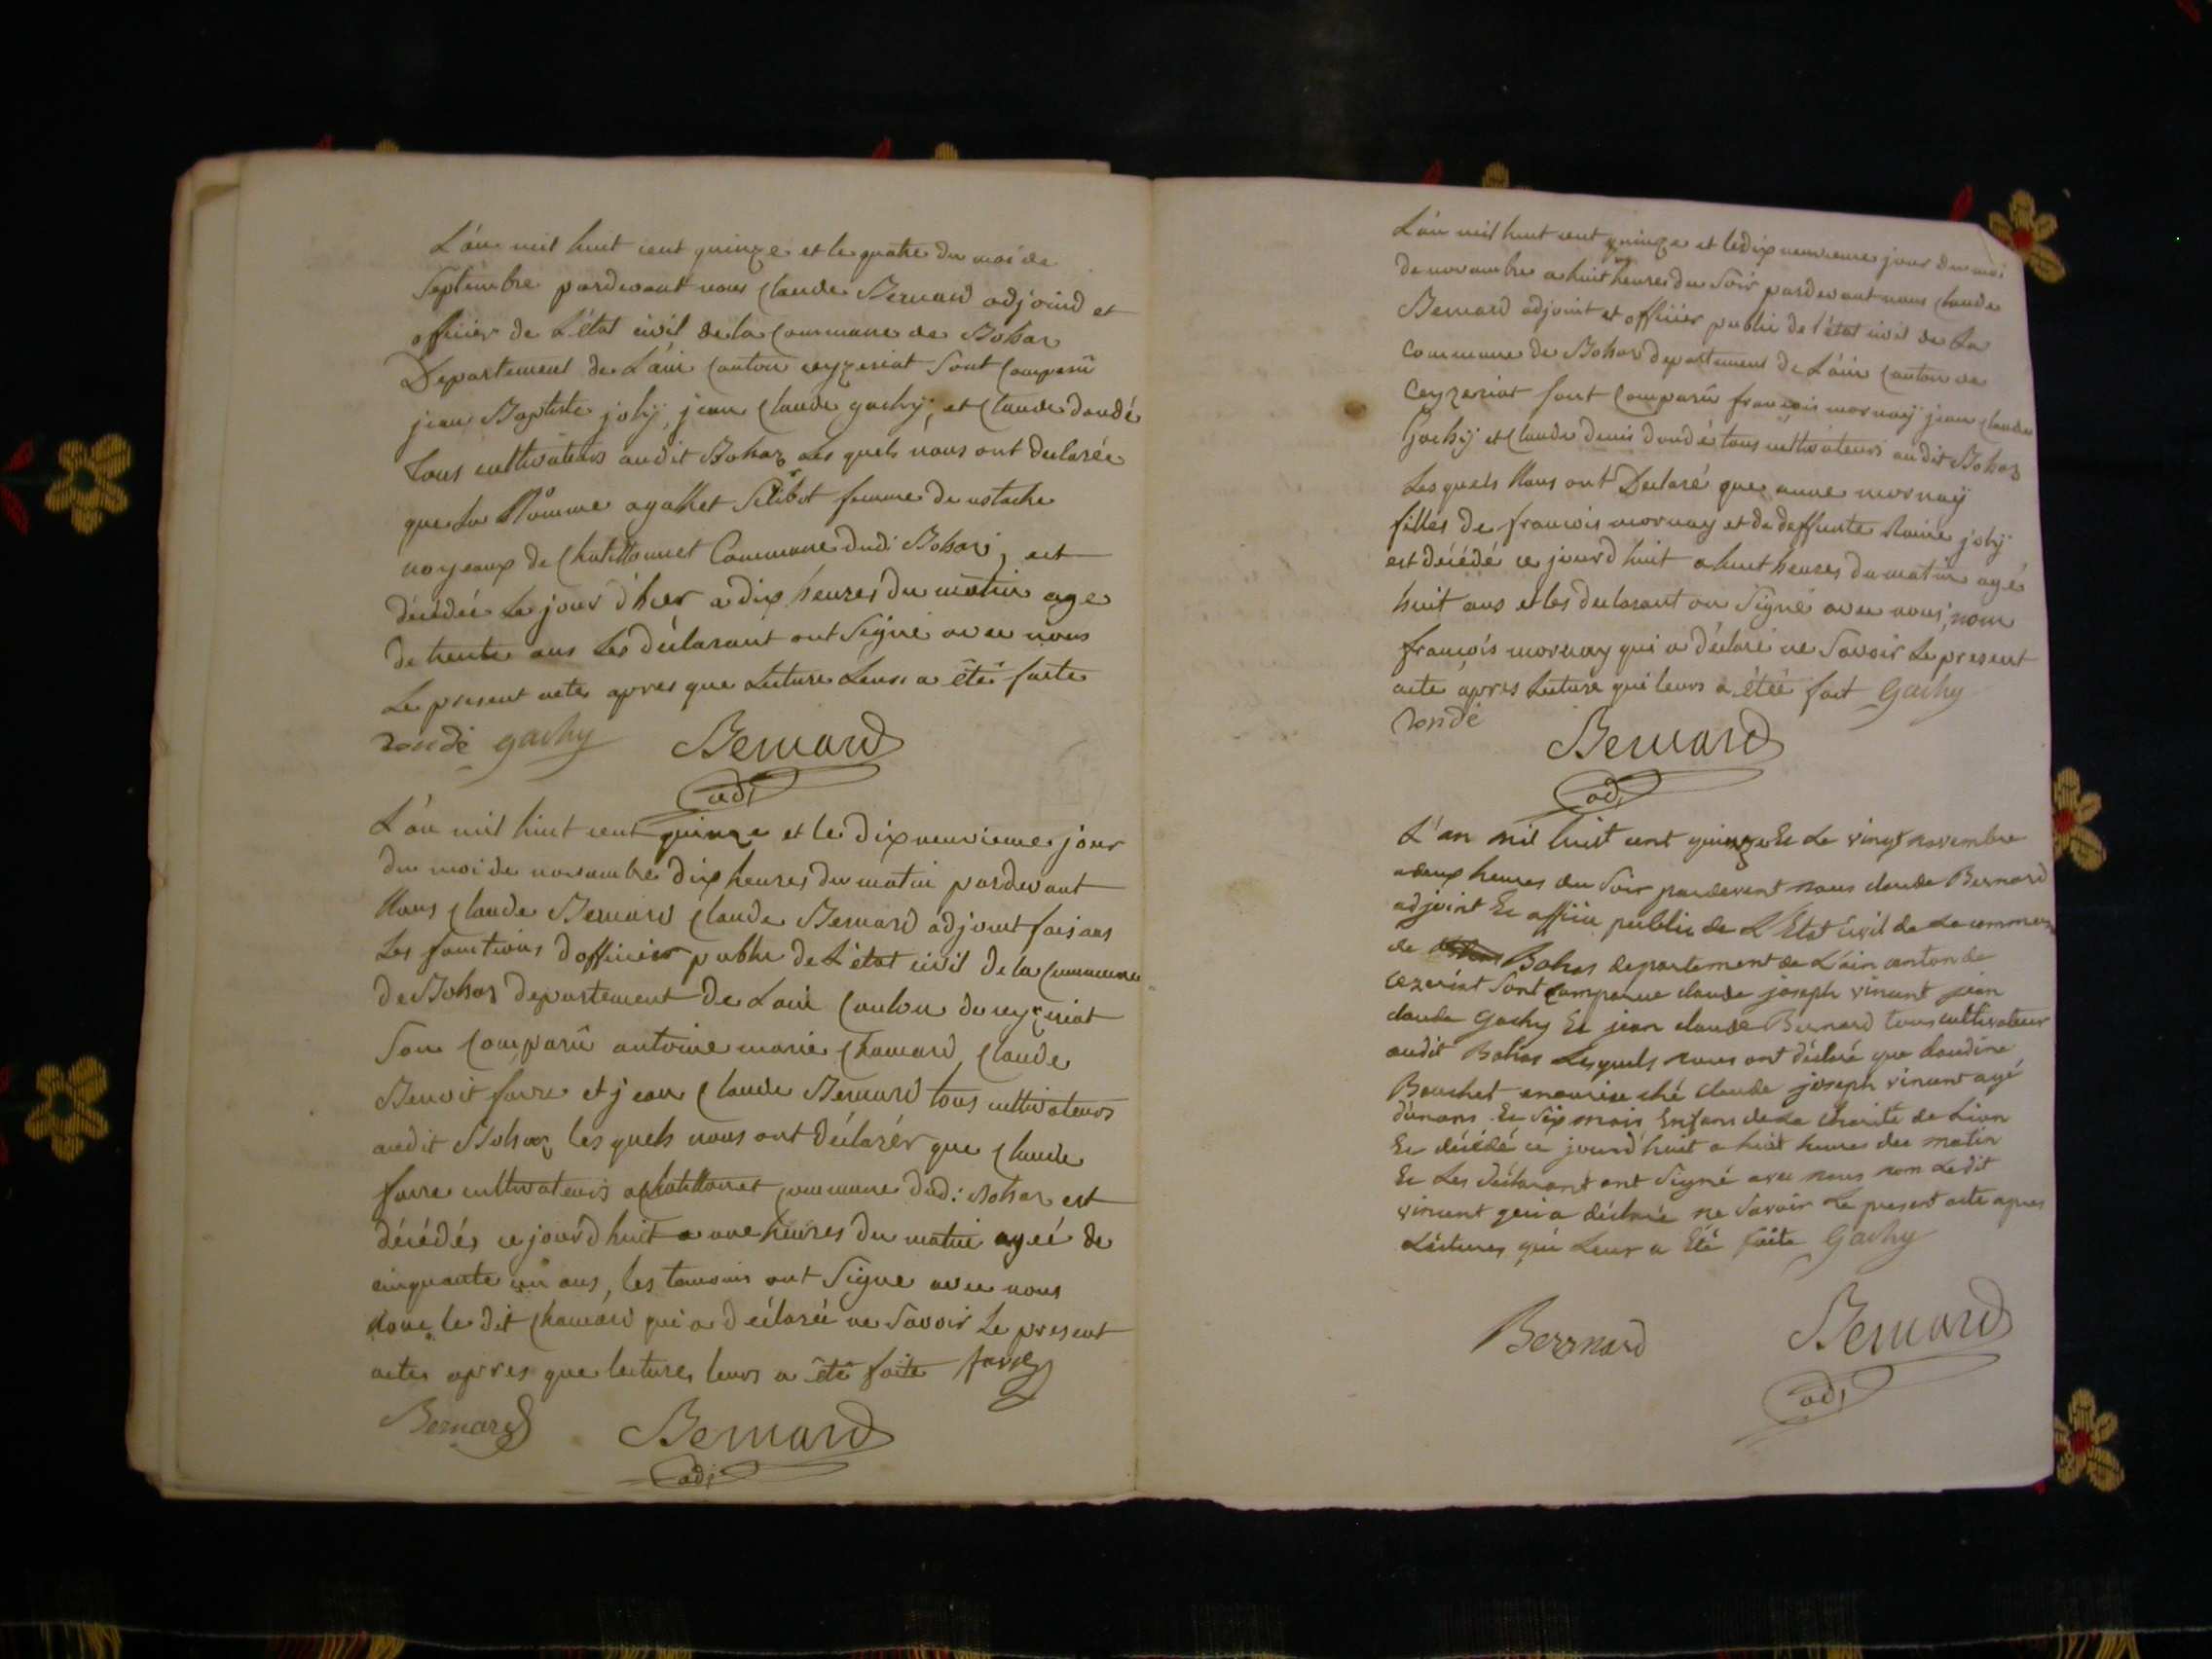 L'an mil huit cent quinze et le quatre du moi de
Septembre pardevant nous Claude Bernard adjoind et
officier de L'état civil de la Commune de Bohas
Departement de L'ain Canton ceyzeriat Sont Comparû
jean Baptiste joly, jean Claude gachy, et Claude dondé
tous cultivateurs audit Bohas Les quels nous ont declarée
que La Nomme agathet femme de ustache
noyeaux de Chatillonnet Commune dudi Bohas, est
décédée Le jour d'hier a dix heures du matin age
de trente ans Les déclarant ont Signé avec nous
Le present acte apres que Lecture Leurs a êté faite
rondé gachy Bernard
adj
L'an mil huit cent quinze et le dix neuvieme jour
du moi de novambre dix heures du matin pardevant
Nous Claude Bernard Claude Bernard adjoint faisans
Les fonctions d'officier public de L'état civil de la Commune
de Bohas departement de Lain Canton de ceyzeriat
Son Comparû antoine marie Chanard, Claude
Benoit favre et jean Claude Bernard tous cultivateurs
audit Bohas les quels nous ont déclarér que Claude
favre cultivateurs a Chatillonet Commune dud: Bohas est
décédés ce jourd'huit a une heures du matin ageé de
cinquante un ans, les temoins ont Signe avec nous
none le dit Chanard qui a déclareé ne Savoir Le present
actes apres que lectures leurs a êté faite favre
Bernard Bernard
adj
L'an mil huit cent quinze et le dix neuvieme jour du moi
de novambre a huit heures du Soir pardevant nous Claude
Bernard adjoint et officier public de l'état civil de La
Commune de Bohas departement de L'ain Canton de
Ceyzeriat sont Comparû françois mornay jean Claude
Gachy et Claude denis dondé tous cultivateurs au dit Bohas
Les quels Nous ont Declaré que anne mornay
filles de francois mornay et de deffunte Raine joly
est décédé ce jourd'huit a huit heures du matin agé
huit ans et les declarant on Signé avec nous, nom
françois mornay qui a déclaré ne Savoir Le present
acte apres Lecture qui leurs a étéé fait Gachy
rondé Bernard
adj
L'an mil huit cent quinze Et Le vingt novembre
a deux heures du Soir pardevent nous claude Bernard
adjoint Et officie public de L'Etat civil de La commune
de Bohas departement de L'ain canton de
cezeriat Sont comparue claude joseph vincent jean
claude Gachy Et jean claude Bernard tous cultivateur
audit Bohas Lesquels nous ont déclaré que claudine
Bouchet ché claude joseph vincent agé
d'un ans Et Six mois Enfans de La charité de Lion
Et décédé ce jourd'huit a huit heures du matin
Et Les déclarant ont Signé avec nous nom Ledit
vincent qui a déclaré ne Savoir Le present acte apres
Léctures qui Leur a Eté faite Gachy
Bernard Bernard
adj